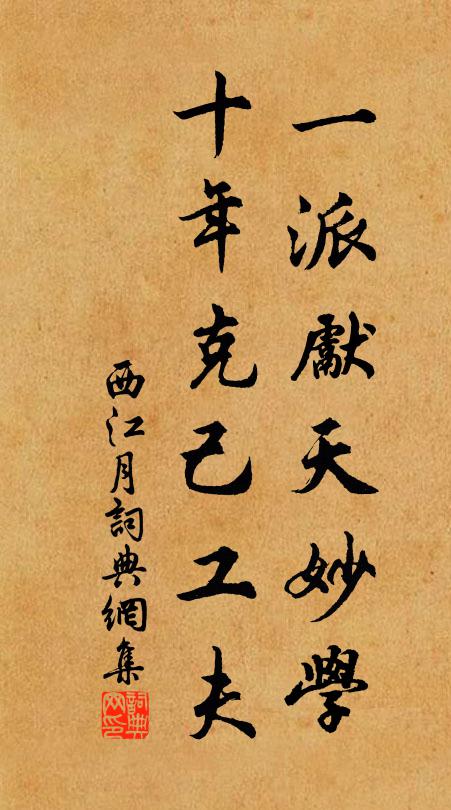 一派獻天妙學
十年克己工夫
西江月詞典網集
詞典网印